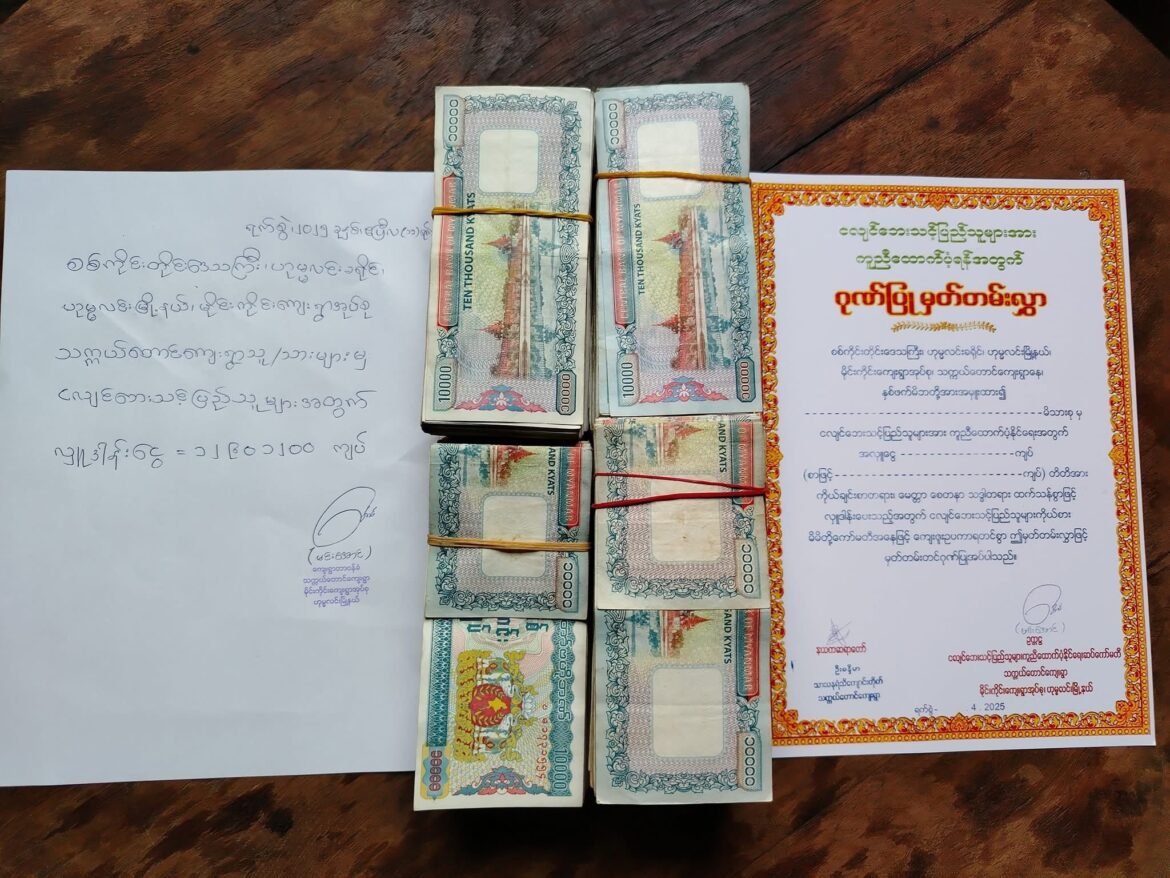 ရက်စွဲ၊ ၂၀၂၅ ခုနှစ်၊ ဧပြီလ
စစ်ကိုင်းတိုင်းဒေသကြီး၊ ဟုမ္မလင်းခရိုင်၊
ဟုမ္မလင်းမြို့နယ်၊ မိုင်းကိုင်းကျေးရွာအုပ်စု
သက္ကယ်တောင်ကျေးရွာသူ/သားများမှ
ငလျင်ဘေးသင့်ပြည်သူများအတွက်
လှူဒါန်းငွေ = ၁၂၉၀၁၂၀၀ ကျပ်
(မင်းအောင်)
ကျေးရွာတာဝန်ခံ
သက္ကယ်တောင်ကျေးရွာ
မိုင်းကိုင်းကျေးရွာအုပ်စု
ဟုမ္မလင်းမြို့နယ်
10000
TEN THOUSAND KYATS
CENTRAL BANK OF MYANMAR
၁၀၀၀၀
10000
TEN THOUSAND KYATS
CENTRAL BANK OF MYANMAR
၁၀၀၀၀
AND KYATS
၁၀၀၀၀
AND KYATS
၁၀၀၀၀
10000
၁၀၀၀၀
AND KYATS
၁၀၀၀၀
ငလျင်ဘေးသင့်ပြည်သူများအား
ကူညီထောက်ပံ့ရန်အတွက်
ဂုဏ်ပြုမှတ်တမ်းလွှာ
စစ်ကိုင်းတိုင်းဒေသကြီး၊ ဟုမ္မလင်းခရိုင်၊ ဟုမ္မလင်းမြို့နယ်၊
မိုင်းကိုင်းကျေးရွာအုပ်စု၊ သက္ကယ်တောင်ကျေးရွာနေ၊
နှစ်ဖက်မိဘတို့အားအမှူးထား၍
မိသားစု မှ
ငလျင်ဘေးသင့်ပြည်သူများအား ကူညီထောက်ပံ့နိုင်ရေးအတွက်
အလှူငွေ ကျပ်
(စာဖြင့် ကျပ်) တိတိအား
ကိုယ်ချင်းစာတရား၊ မေတ္တာ စေတနာ သဒ္ဓါတရား ထက်သန်စွာဖြင့်
လှူဒါန်းပေးသည့်အတွက် ငလျင်ဘေးသင့်ပြည်သူများကိုယ်စား
မိမိတို့ကော်မတီအနေဖြင့် ကျေးဇူးဥပကာရတင်စွာ ဤမှတ်တမ်းလွှာဖြင့်
မှတ်တမ်းတင်ဂုဏ်ပြုအပ်ပါသည်။
နာယကဆရာတော်
သာသနရံသီကျောင်းတိုက်
သက္ကယ်တောင်ကျေးရွာ
(မင်းအောင်)
ဥက္ကဋ္ဌ
ငလျင်ဘေးသင့်ပြည်သူများကူညီထောက်ပံ့နိုင်ရေးဆပ်ကော်မတီ
သက္ကယ်တောင်ကျေးရွာ
မိုင်းကိုင်းကျေးရွာအုပ်စု၊ ဟုမ္မလင်းမြို့နယ်
ရက်စွဲ- . 4 . 2025